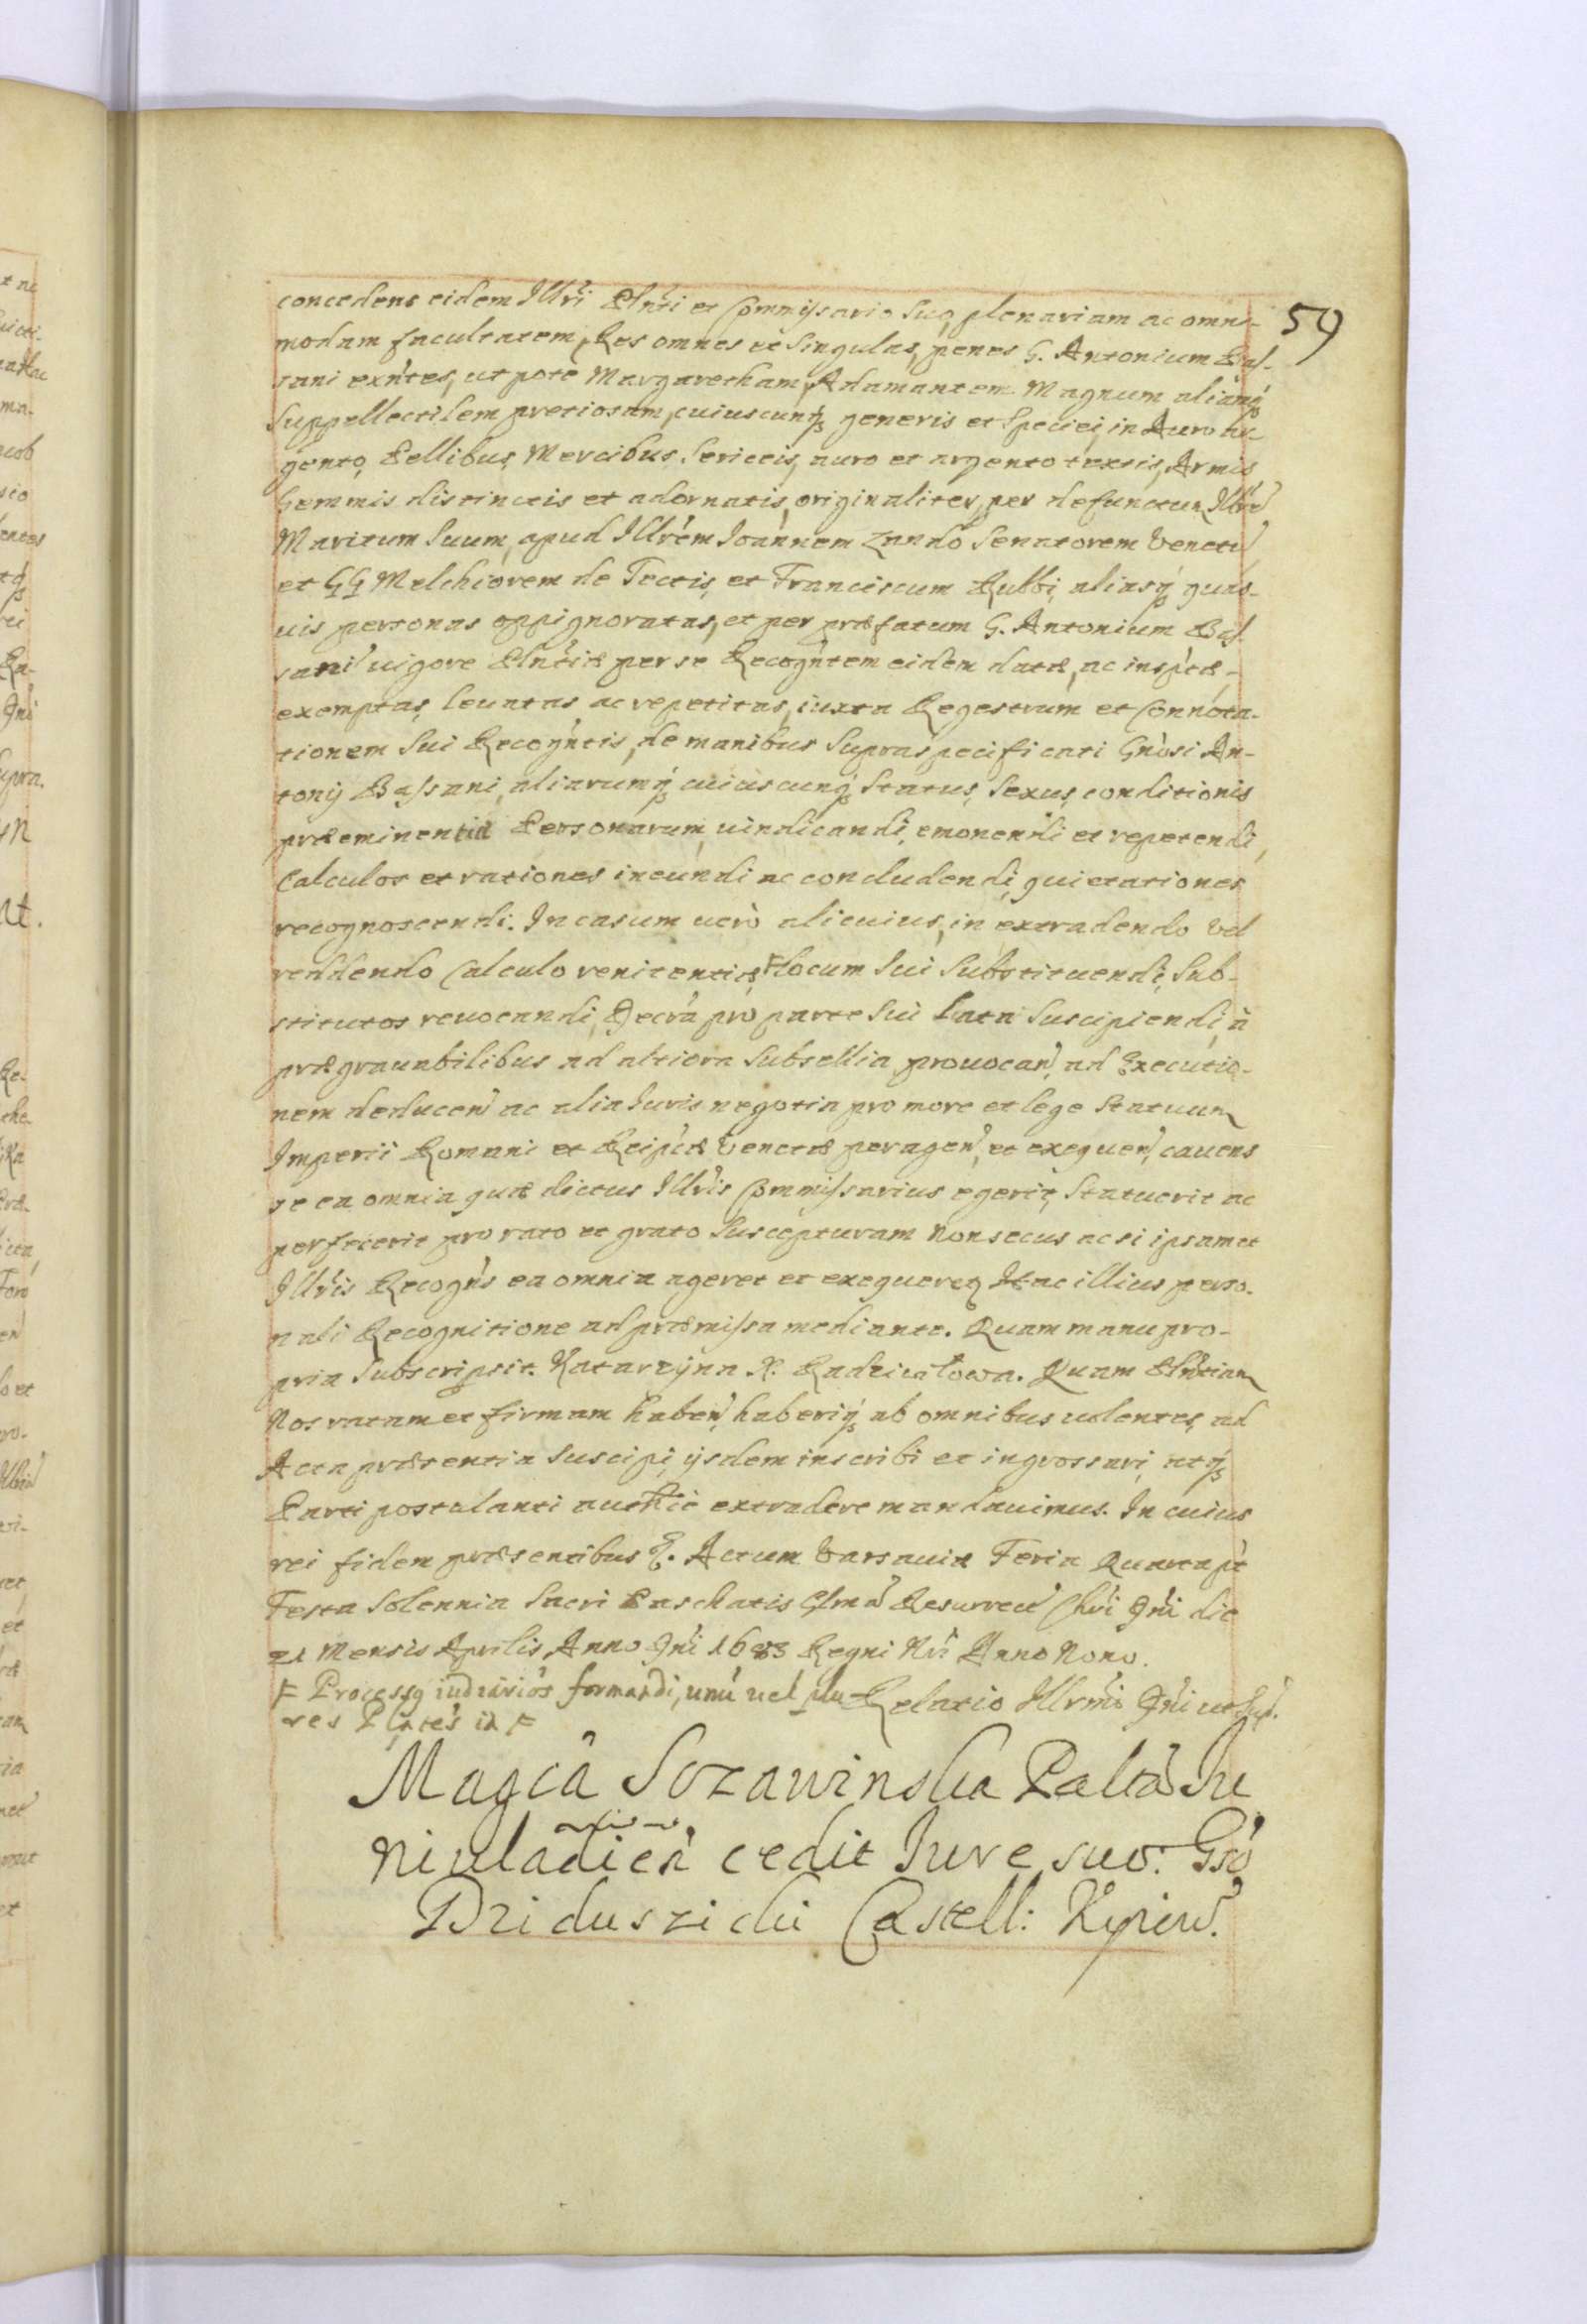 59
concedens eidem Illri Plnti et Commissario Suo, plenariam ac omni-
modam facultatem, Res omnes et Singulas, penes G. Antonium Bas-
sani exntes, ut pote Margaretham, Adamantem Magnum aliamq
Suppellectilem pretiosam, cuiuscunq generis et Speciei, in Auro ar-
gento, Pellibus, Mercibus, Sericeis, auro et argento textis, Armis
Gemmis distinctis et adornatis, originaliter, per defunctum Illrem
Maritum Suum, apud Illrem Joannem Zando Senatorem Venetu
et GG Melchiorem de Tectis, et Franciscum Rubbi, aliasq quas-
uis personas oppignoratas, et per præfatum G. Antonium Bas-
sani uigore Plntiæ per se Recogntem eidem datæ, ac insptæ,
exemptas, leuatas ac repetitas, iuxta Regestrum et Connota-
tionem Sui Recogntis, de manibus Supraspecificati Gnosi An-
tonij Bassani, aliarumq cuiuscunq Status, Sexus, conditionis
præeminentiæ Personarum, uindicandi, emonendi et repetendi,
Calculos et rationes ineundi ac concludendi, quietationes
recognoscendi. In casum uerò alicuius, in extradendo vel
reddendo Calculo renitentiæ, F locum Sui Substituendi, Sub-
stitutos reuocandi, Decra pro parte Sui Lata Suscipiendi, à
prægrauabilibus ad altiora Subsellia prouocan, ad Executio-
nem deducen ac alia Iuris negotia pro more et lege Statuum
Imperii Romani et Reiptæ Venetæ peragen, et exequen, cauens
se ea omnia quæ dictus Illris Commissarius egerit, Statuerit ac
perfecerit pro rato et grato Suscepturam non secus ac si ipsamet
Illris Recogns ea omnia ageret et exequeretur Hac illius perso-
nali Recognitione ad præmissa mediante. Quam manu pro-
pria Subscripsit. Katarzyna X. Radziwiłowa. Quam Plntiam
Nos ratam et firmam haben, haberiq ab omnibus uolentes, ad
Acta præsentia Suscipi, ijsdem inscribi et ingrossari, atq
Parti postulanti authce extradere mandauimus. In cuius
rei fidem præsentibus &. Actum Varsauiæ Feria Quarta pt
Festa Solennia Sacri Paschatis Resurrect Chri Dni die
21 Mensis Aprilis, Anno Dni 1683 Regni Nri Anno Nono.
F Processq iudiarios formandi, unu uel plu- Relatio Illrmi Dni ut Sup.
res F
Magca Sozawinska Palta Ju
niuladien cedit Jure suo. Gso
Dzidusziczki Castell: Kyiew.